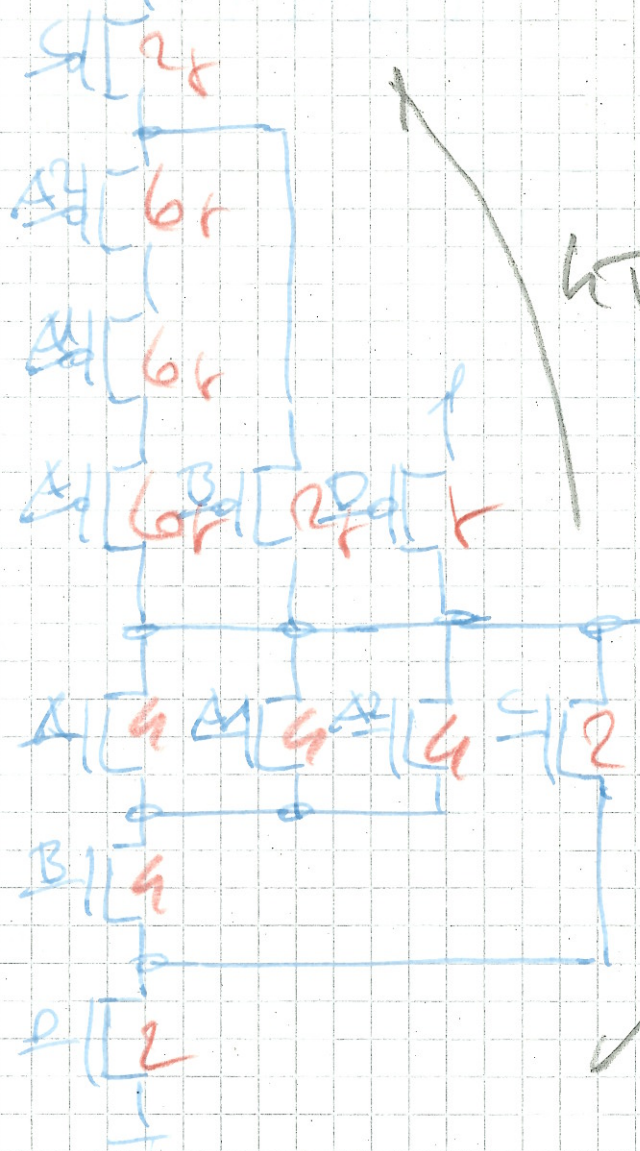 C 2r
A2 6r
A1 6r
A 6r B 2r D r
A 4 A1 4 A2 4 C 2
B 4
D 2